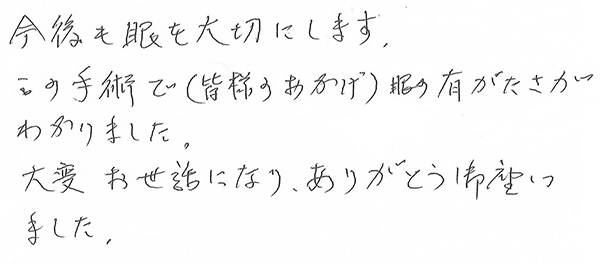 今後も眼を大切にします。
この手術で(皆様のおかげ)眼の有がたさが
わかりました。
大変 お世話になり、ありがとう御座い
ました。